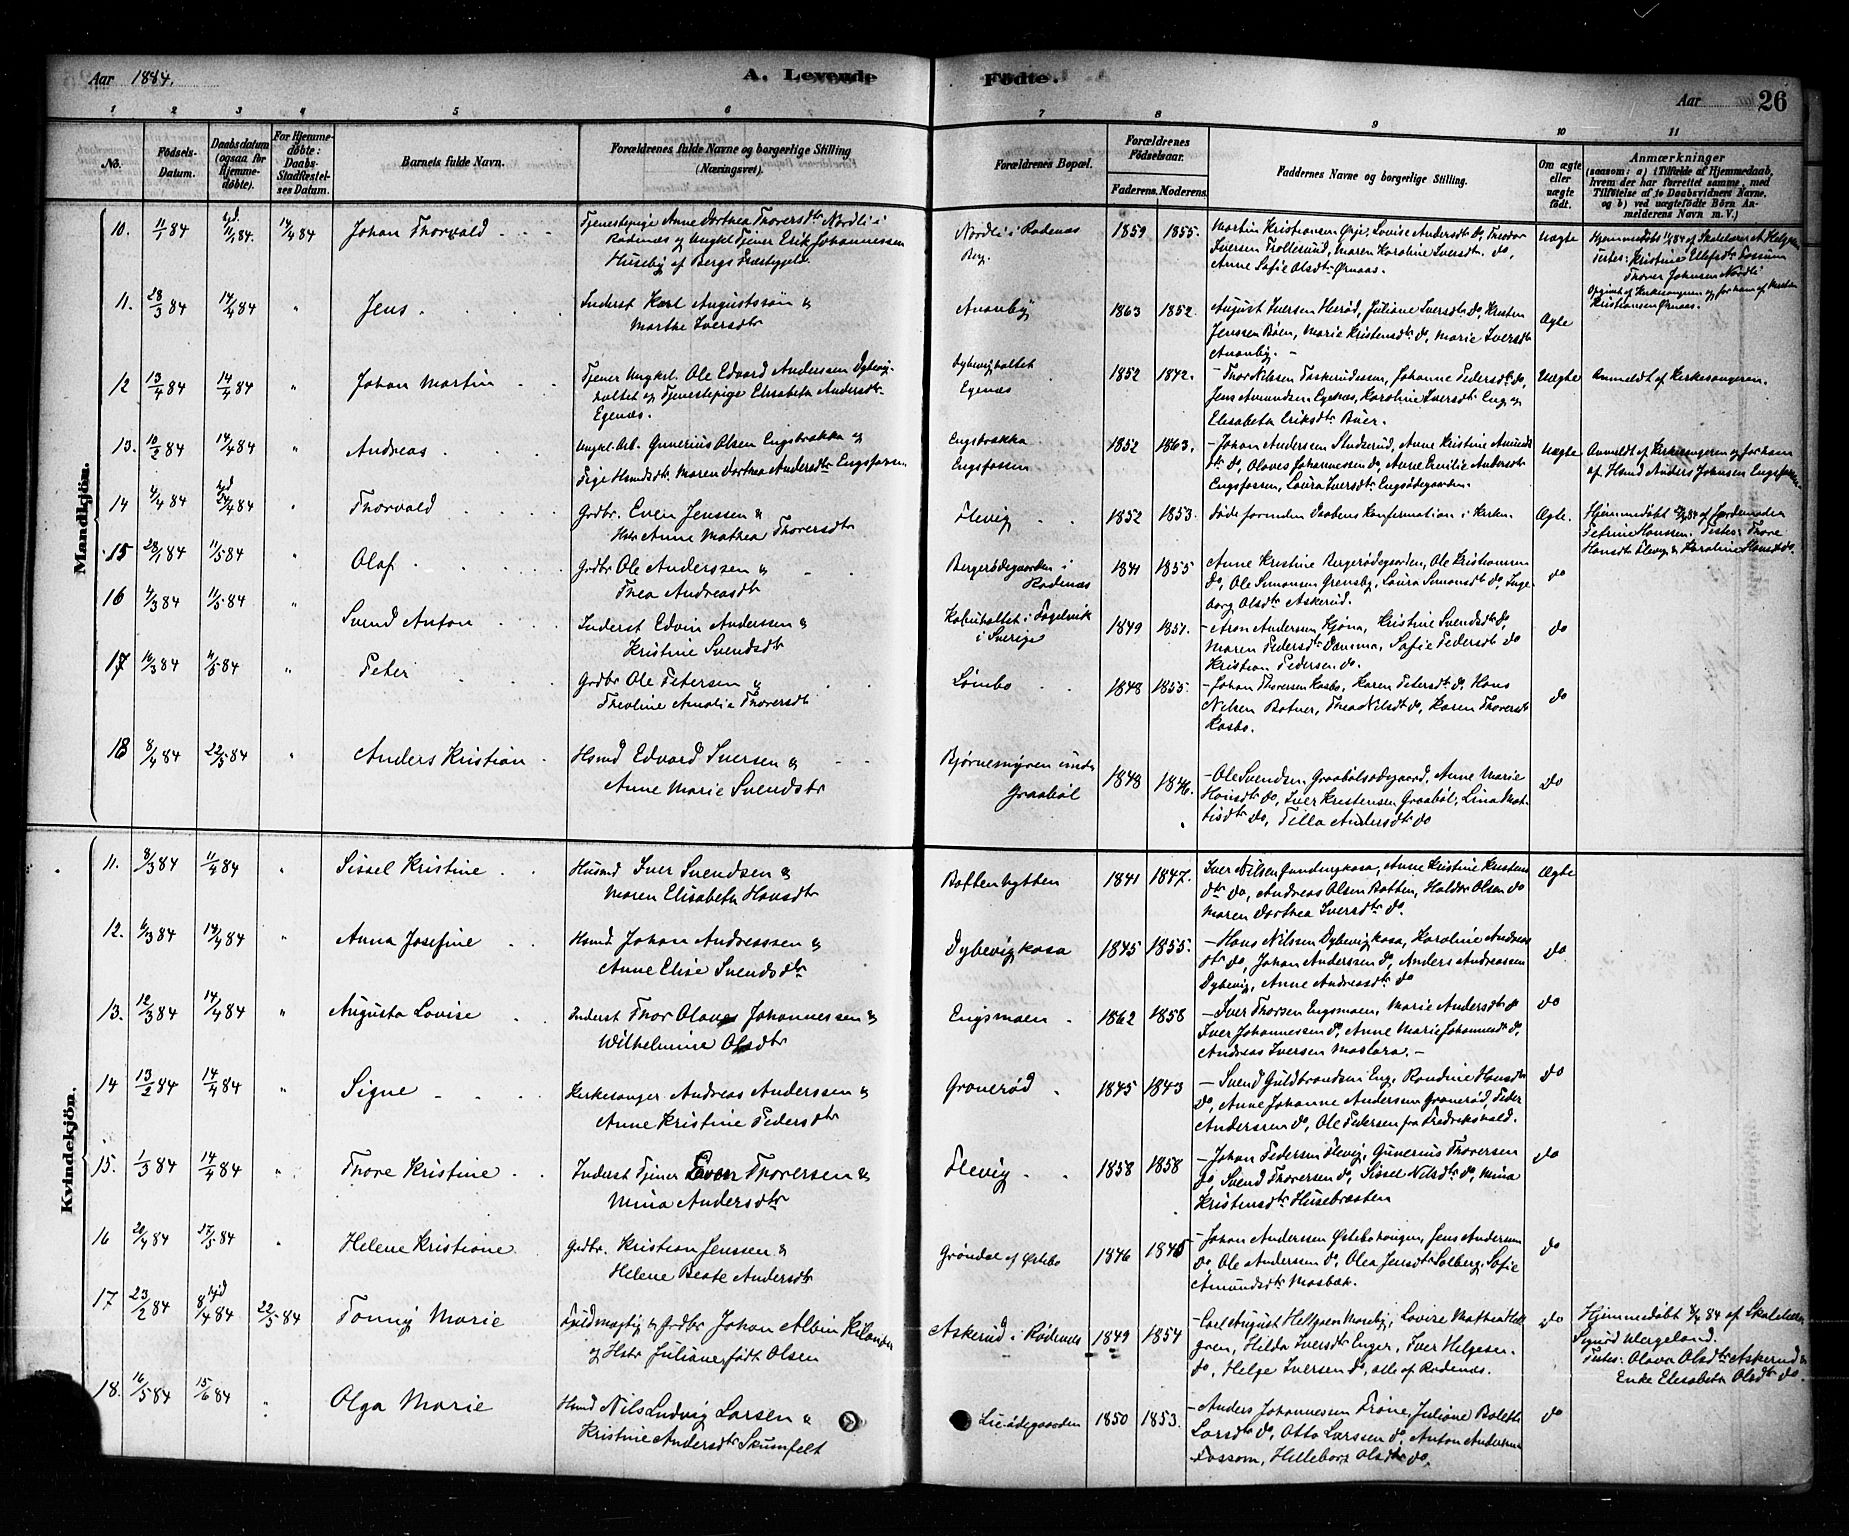 Aar 1884.
A. Levende Fødte.
Aar 26
1 2 3 4 5 6 7 8 9 10 11
No.
Fødsels-Datum.
Daabsdatum (ogsaa for Hjemme-døbte).
For Hjemme-døbte: Daabs-Stadfæstel-ses Datum.
Barnets fulde Navn.
Forældrenes fulde Navne og borgerlige Stilling (Næringsvei).
Forældrenes Bopæl.
Forældrenes Fødselsaar.
Faderens. Moderens.
Faddernes Navne og borgerlige Stilling.
Om ægte eller uægte født.
Anmærkninger
(saasom: a) i Tilfælde af Hjemmedaab, hvem der har forrettet samme, med Tilføielse af to Daabsvidners Navne, og b) ved uægtefødte Børn An-melderens Navn m. V.)
Mandkjön.
10. 11/1 84 11/1 84. 14/4 84 Johan Thorvald
Tjenestepige Anne Dorthea Thoversdtr Nordli i
Rødenæs og Ungkl Tjener Erik Johannessen
Huseby af Bergs Præstegjeld
Nordli i Rødenæs
Berg.
1859 1855.
Martin Kristiansen Ørje, Lovise Andersdtr do, Theodor
Iversen Trollerud, Maren Karoline Iversdtr do,
Anne Sofie Olsdtr Ørnaas.
Uægte
Testes: Kristine Ellefsdtr Fossum
Thover Johnsen Nordli
Kristiansen Ørnaas.
11. 28/3 84 14/4 84 " Jens
Inderst Karl Augustssøn &
Marthe Iversdtr
Ananby 1863 1852.
August Iversen Herød, Juliane Iversdtr do, Kristen
Jenssen Bøen, Marie Kristensdtr do, Marie Iversdtr
Ananby. -
Ægte
12 13/4 84 14/4 84 " Johan Martin
Tjener Ungkal. Ole Edvard Andersen Dybevig-
holtet og Tjenestepige Elisabeth Andersdtr
Egenæs.
Dybevigholtet
Egenæs
1852 1842.
- Thor Nilsen Taskerudessen, Johanne Pedersdtr do,
Jens Amundsen Egenæs, Karoline Iversdtr Eng og
Elisabeth Eriksdtr Buer.
Uægte
Anmeldt af Kirkesangeren.
13. 10/2 84 14/4 84 " Andreas
Ungkl. Arb. Gunerius Olsen Engsbrække og
Pige Husmdtr. Maren Dorthea Andersdtr Engsfossen
Engsbrække
Engsfossen
1852 1863.
- Johan Andersen Studsrud, Anne Kristine Amunds
dtr do, Olaves Johannessen do, Anne Emilie Andersdtr
Engsfossen, Laura Iversdtr Engsødegaarden.
Uægte
Anmeldt af Kirkesangeren og for ham
af Hsmd Anders Johnsen Engsfossen.
14 4/4 84 84 " Thorvald
Grdbr. Even Jenssen &
Hstr Anne Mathea Thoversdtr
Flevig 1852 1853.
Døde forinden Daabens Konfirmation i Kirken.
Ægte.
Petrine Hansen. Testes: Thore
Hansdtr Flevig & Karoline Hansdtr do.
15 28/1 84 11/5 84 " Olaf
Grdbr Ole Anderssen &
Thea Andreasdtr
Bergerødegaarden i
Rødenæs
1841 1855
Anne Kristine Bergerødegaarden, Ole Kristiansen
do, Ole Simonsen Grensby, Laura Simonsdtr do, Inge-
borg Olsdtr Askerud.
do
16 4/3 84 11/5 84 " Svend Anton
Inderst Edvin Anderssen &
Kristine Svendsdtr
i Sverige
1849 1851.
- Aron Andersen Kjøna, Kristine Svendsdtr do,
Maren Pedersdtr Damma, Sofie Pedersdtr do
Kristian Pedersen do.
do
17 16/3 84 11/5 84 " Peter
Grdbr Ole Petersen &
Theoline Amalie Thoversdtr
Lømbo 1848 1855.
- Johan Thoversen Kasbo, Karen Petersdtr do, Hans
Nilsen Botner, Thea Nilsdtr do, Karen Thoversdtr
Kasbo.
do
18 8/4 84 22/5 84 " Anders Kristian
Hsmd Edvard Iversen &
Anne Marie Svendsdtr
Bjørnemyren under
Graabøl
1848 1846.
- Ole Svendsen Graabølsødegaard, Anne Marie
Hansdtr do, Iver Kristensen Graabøl, Lina Mat-
tisdtr do, Tilla Andersdtr do
do
Kvindekjön.
11. 8/3 84 11/4 84 " Sissel Kristine
Husmd Iver Svendsen &
Maren Elisabeth Hansdtr
Bottenhytten 1841 1847.
Iver Nilsen Gundengkasa, Anne Kristine Kristens
dtr do, Andreas Olsen Botten, Haldor Olsen do
Maren Dorthea Iversdtr do.
Ægte
12. 6/3 84 14/4 84 " Anna Josefine
Hsmd. Johan Andreassen &
Anne Elise Svendsdtr
Dybevigkasa 1845 1855.
- Hans Nilssen Dybevigkasa, Karoline Andreas
dtr do, Johan Anderssen do, Anders Andreassen
Dybevig, Anne Andreasdtr do
do
13. 12/3 84 14/4 84 " Augusta Lovise
Inderst Thor Olaves Johannessen &
Wilhelmine Olsdtr
Engsmoen 1862 1858
- Iver Thorsen Engsmoen, Marie Andersdtr do
Iver Johannessen do, Anne Marie Johannesdtr do,
Andreas Iversen Mosløra. -
do
14 13/2 84 14/4 84 " Signe
Kirkesanger Andreas Anderssen &
Anne Kristine Pedersdtr
Gronerød 1845 1843
- Svend Guldbrandsen Eng, Randine Hansdtr
do, Anne Johanne Andersen Gronerød, Peder
Anderssen do, Ole Pedersen fra Fredrikshald.
do
15. 1/3 84 14/4 84 " Thore Kristine
Inderst Tjener Even Thoversen &
Mina Andersdtr
Flevig 1858 1858
- Johan Pedersen Flevig, Gunerius Thoversen
do, Svend Thoversen do, Sissel Nilsdtr do, Mina
Kristensdtr Husebraaten
do
16 20/4 84 17/5 84 " Helene Kristiane
Grdbr. Kristian Jenssen &
Helene Beate Andersdtr
Grøndal af Østebø 1846 1845
- Johan Anderssen Østebøhaugen, Jens Andersen
do, Ole Andersen do, Olea Jensdtr Solberg, Sofie
Amundsdtr Mosbæk.
do
17 23/2 84 8/4 84 22/5 84 Tonny Marie
Fuldmægtig & Grdbr Johan Albin Kilander
og Hstr Juliane født Olsen
Askerud i Rødenæs 1849 1854
- Carl August Hellgren Moreby, Lovise Mathea Hell-
gren, Hilda Iversdtr Enger, Iver Helgesen
do, Helge Iversen do, alle af Rødenæs.
do
Hjemmedøbt 8/4 84 af Skolelærer
Sigurd Wergeland.
Testes: Olava Olsdtr Askerud &
Enke Elisabeth Olsdtr do.
18. 16/5 84 15/6 84 " Olga Marie
Hsmd Nils Ludvig Larsen &
Kristine Andersdtr Skumfelt
Lieødegaarden 1850 1853.
- Anders Johannesen Trøne, Juliane Bolette
Larsdtr do, Otto Larssen do, Anton Andersen
Fossom, Helleborg Olsdtr do.
do